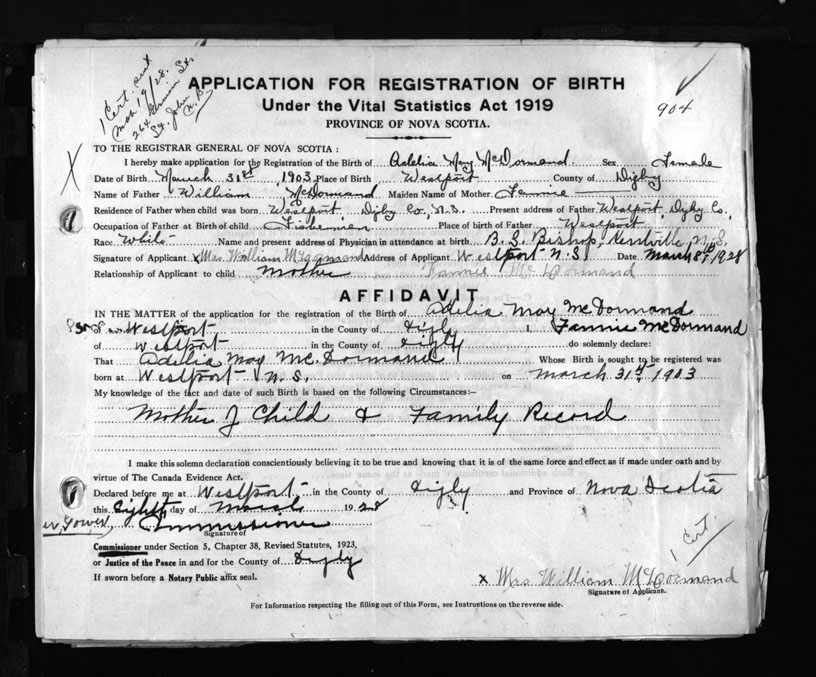 1 Cert. sent
Mch 19/28.
264 St.
St. John
N.B.
904
APPLICATION FOR REGISTRATION OF BIRTH
Under the Vital Statistics Act 1919
PROVINCE OF NOVA SCOTIA.
TO THE REGISTRAR GENERAL OF NOVA SCOTIA :
I hereby make application for the Registration of the Birth of Adelia May McDormand Sex Female
Date of Birth March 31st 1903 Place of Birth Westport County of Digby
Name of Father William McDormand Maiden Name of Mother
Residence of Father when child was born Westport, Digby Co., N.S. Present address of Father Westport, Digby Co.,
Occupation of Father at Birth of child Fisherman Place of birth of Father Westport N.S.
Race White Name and present address of Physician in attendance at birth B. S. Bishop, Kentville,
Signature of Applicant x Mrs. William McDormand Address of Applicant Westport N.S. Date March 8th, 1928
Relationship of Applicant to child Mother Fannie McDormand
AFFIDAVIT
IN THE MATTER of the application for the registration of the Birth of Adelia May McDormand
Westport in the County of Digby I, Fannie McDormand
of Westport in the County of Digby do solemnly declare:
That Adelia May McDormand Whose Birth is sought to be registered was
born at Westport N.S. on March 31st 1903
My knowledge of the fact and date of such Birth is based on the following Circumstances:—
Mother of Child & Family Record
I make this solemn declaration conscientiously believing it to be true and knowing that it is of the same force and effect as if made under oath and by
virtue of The Canada Evidence Act.
Declared before me at Westport in the County of Digby and Province of Nova Scotia
this Eighth day of March 1928
Commissioner
Signature of
Commissioner under Section 5, Chapter 38, Revised Statutes, 1923,
or Justice of the Peace in and for the County of Digby
If sworn before a Notary Public affix seal.
1 Cert.
x Mrs William McDormand
Signature of Applicant.
For Information respecting the filling out of this Form, see Instructions on the reverse side.